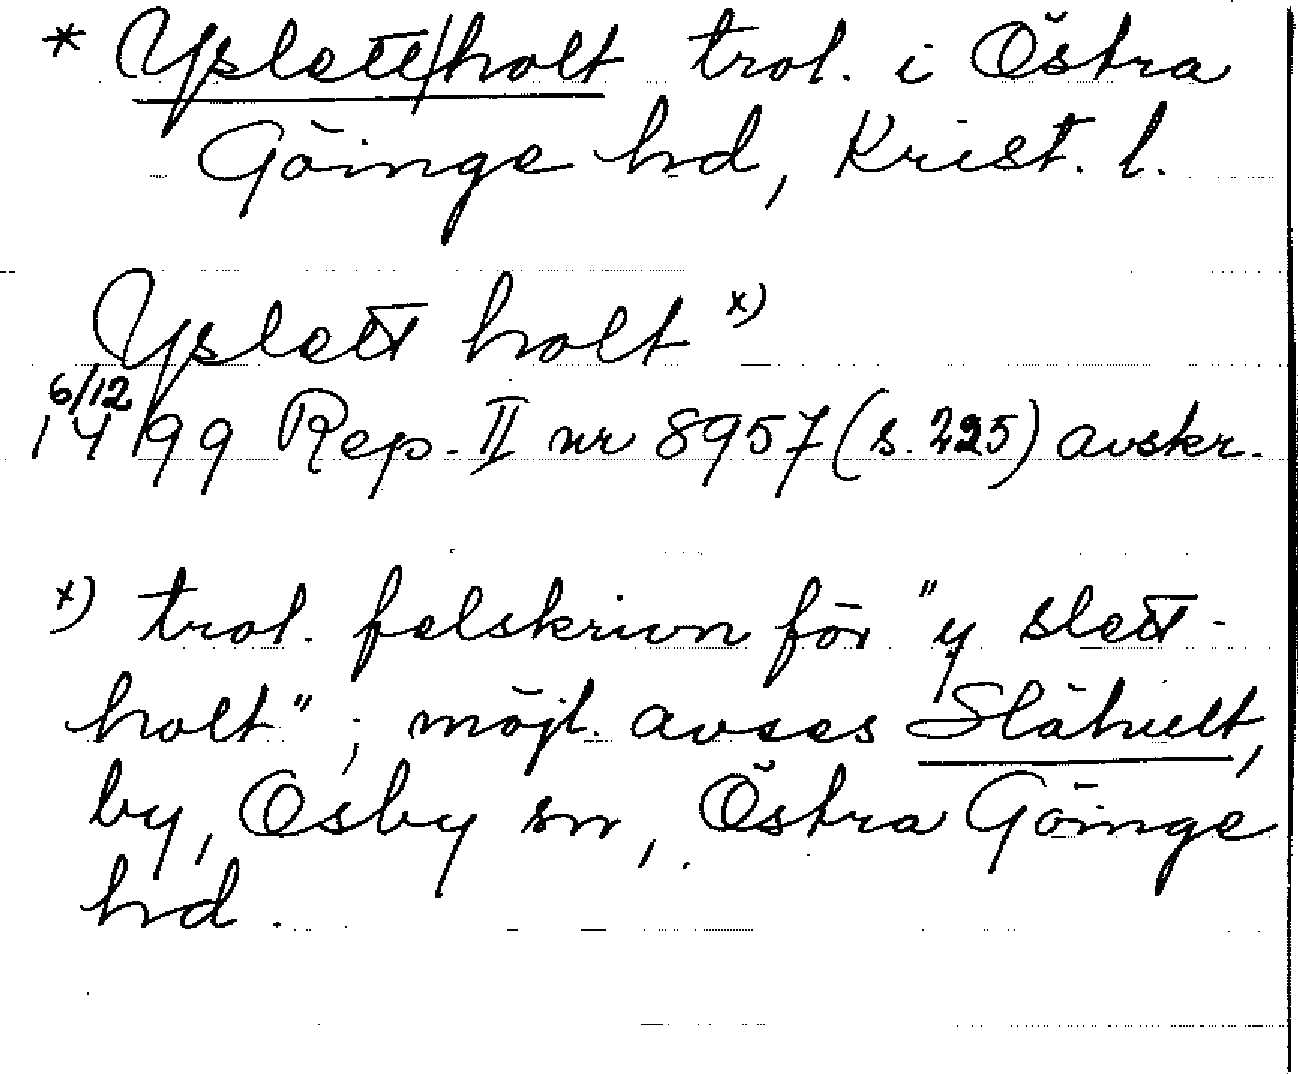 * Yslett/holt trol. i Östra
Göinge hd, Krist. l.
Yslett holt x)
6/12
1499 Rep. II nr 8957 (s. 225) avskr.
x) trol. felskrivn för "y slett-
holt"; möjl. avses Slähult,
by, Osby sn, Östra Göinge
hd.